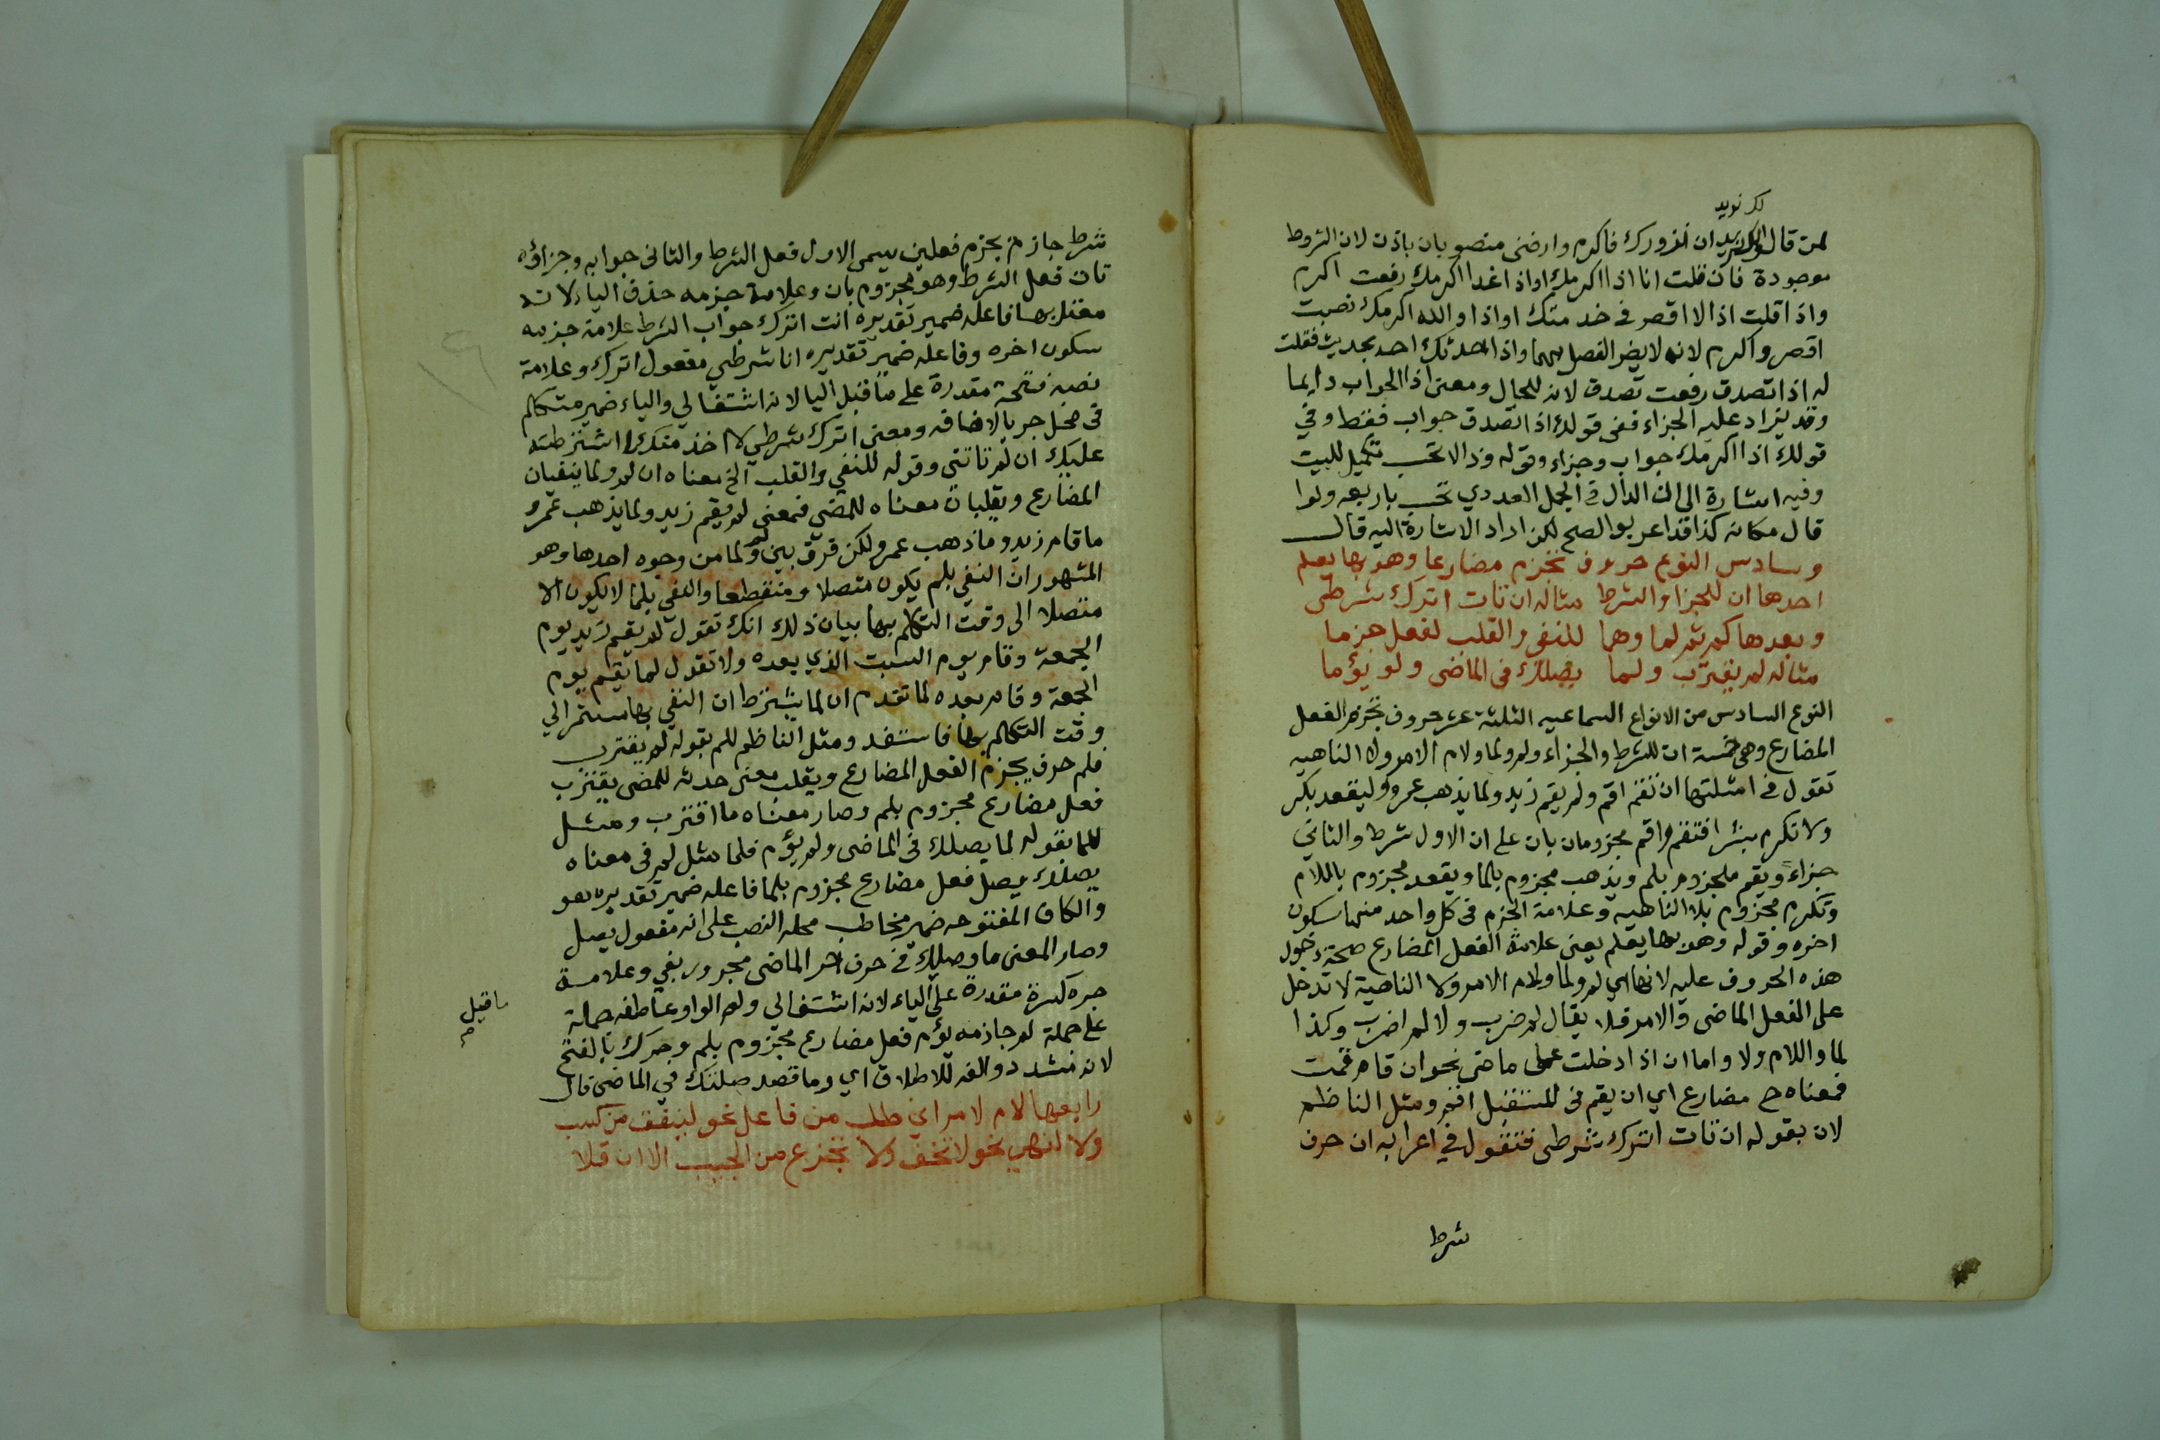 لك نويد
لمن قال ان ازورك فاكرم وارضى منصوبان باذن لان الشروط
موجودة فان قلت انا اذا اكرمك او اذا غدا اكرمك رفعت اكرم
واذا قلت اذا لا اقصر في خدمتك او اذا والله اكرمك نصبت
اقصر واكرم لانه لا يضر الفصل بهما واذا حدثك احد بحديث فقلت
له اذا تصدق رفعت تصدق لانه للحال ومعنى اذا الجواب دايما
وقد يزاد عليه الجزاء ففي قولك اذا تصدق جواب فقط وفي
قولك اذا اكرمك جواب وجزاء وقوله وذالا تحسب تكميل للبيت
وفيه اشارة الى ان الدال في الجمل العددي تحسب باربعه ولوا
قال مكانه كذا قد اعربوا لصح لكن اراد الاشارة اليه قال
وسادس النوع حروف تجزم مضارعا وهو بها يعلم
احدها ان للجزا والشرط مثاله ان تات اترك شرطى
وبعدها لم ثم لما وهما للنفي والقلب لفعل جزما
مثاله لم يقترب ولما يصلك في الماضى ولو يؤما
النوع السادس من الانواع السماعيه الثلثة عشر حروف تجزم الفعل
المضارع وهي خمسة ان للشرط والجزاء ولم ولما ولام الامر ولا الناهيه
تقول في امثلتها ان تقم اقم ولم يقم زيد ولما يذهب عمرو وليقعد بكر
ولا تكرم بشرا فتقم واقم مجزومان بان على ان الاول شرط والثاني
جزاء ويقم مجزوم بلم ويذهب مجزوم بلما ويقعد مجزوم باللام
وتكرم مجزوم بلا الناهيه وعلامة الجزم في كل واحد منهما سكون
اخره وقوله وهو بها يعلم يعني علامة الفعل المضارع صحة دخول
هذه الحروف عليه لانها اي لم ولما ولام الامر ولا الناهية لا تدخل
على الفعل الماضى والامر فلا يقال لم ضرب ولا لم اضرب وكذا
لما واللام ولا واما ان اذا دخلت على ماضى نحو ان قام قمت
فمعناه ح مضارع اي ان يقم في المستقبل اقم ومثل الناظم
لان بقوله ان تات اترك شرطى فتقول في اعرابه ان حرف
شرط
شرط جازم يجزم فعلين يسمى الاول فعل الشرط والثانى جوابه وجزاؤه
تات فعل الشرط وهو مجزوم بان وعلامة جزمه حذف الياء لانه
معتل بها فاعله ضمير تقديره انت اترك جواب الشرط علامة جزمه
سكون اخره وفاعله ضمير تقديره انا شرطى مفعول اترك وعلامة
نصبه فتحة مقدرة على ما قبل اليا لانه اشتغالي والياء ضمير متكلم
في محل جر بالاضافه ومعنى اترك شرطى لا اخذ منك ما اشترطته
عليك ان لم تاتنى وقوله للنفي والقلب الخ معناه ان لم ولما ينفيان
المضارع ويقلبان معناه للمضى فمعنى لم يقم زيد ولما يذهب عمرو
ما قام زيد وما ذهب عمرو ولكن فرق بين لم ولما من وجوه احدها وهو
المشهور ان النفي بلم يكون متصلا ومنقطعا والنفي بلما لا يكون الا
متصلا الى وقت التكلم بها بيان ذلك انك تقول لم يقم زيد يوم
الجمعة وقام يوم السبت الذي بعده ولا تقول لما يقم يوم
الجمعة وقام بعده لما تقدم ان لما يشترط ان النفي بها مستمر الي
وقت التكلم بها فاستفد ومثل الناظم للم بقوله لم يقترب
فلم حرف يجزم الفعل المضارع ويقلب معنى حدثه للمضى يقترب
فعل مضارع مجزوم بلم وصار معناه ما اقترب ومثل
للما بقوله لما يصلك في الماضى ولم يؤم فلما مثل لم في معناه
يصلك يصل فعل مضارع مجزوم بلما فاعله ضمير تقديره هو
والكاف المفتوحه ضمير مخاطب محله النصب على انه مفعول يصل
وصار المعنى ما وصلك في حرف جر الماضى مجرور بفي وعلامة
جره كسرة مقدرة على الياء لانه اشتغالي ولم الواو عاطفه جملة
على جملة لم جازمه يؤم فعل مضارع مجزوم بلم وحرك بالفتح
لانه مشدد والفه للاطلاق اي وما قصد صلتك في الماضى قال
رابعها لام لامر اي طلب من فاعل نحو لينفق من كسب
ولا لنهي نحو لا تخف ولا تجزع من الحبيب الا ان قلا
ما قبل